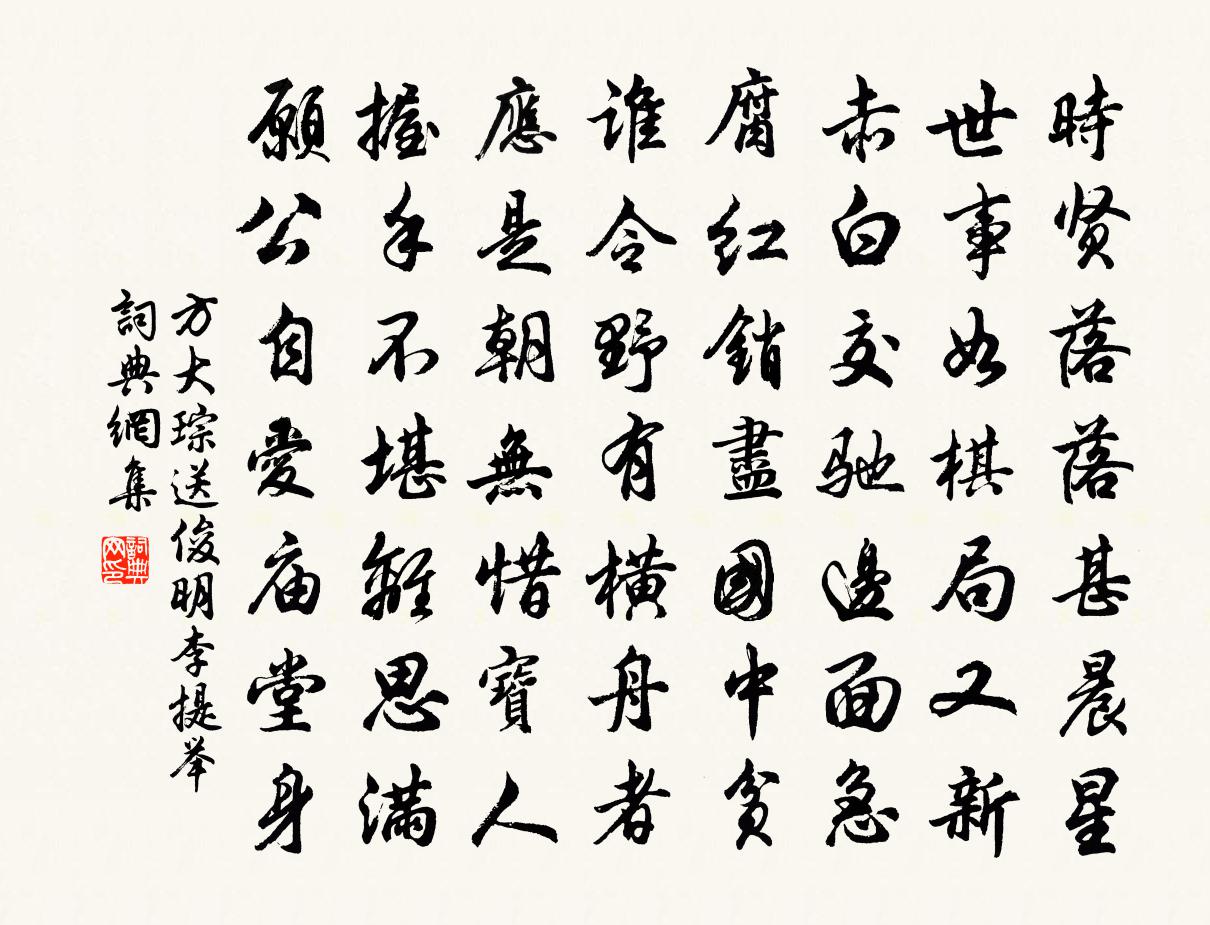 時贤落落甚晨星
世事如棋局又新
赤白交馳邊面急
腐红銷盡國中貧
谁令野有橫舟者
應是朝無惜寶人
握手不堪離思满
願公自愛庙堂身
方大琮送俊明李提举
詞典網集
詞典网印